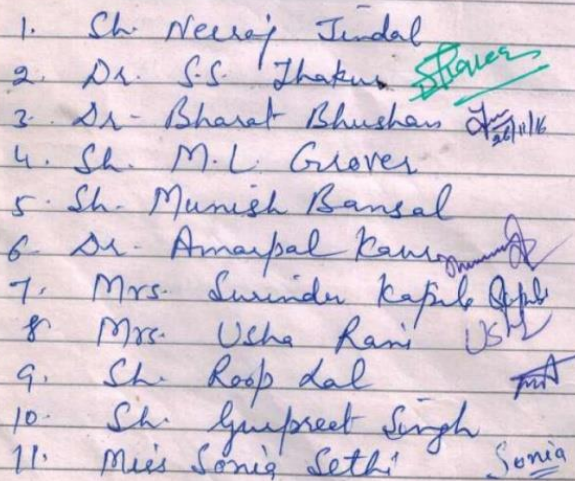 1. Sh. Neeraj Jindal
2. Dr. S.S. Thakur
3. Dr. Bharat Bhushan 26/11/16
4. Sh. M.L. Grover
5. Sh. Munish Bansal
6. Dr. Amarpal Kaur
7. Mrs. Surinder Kapila
8 Mrs. Usha Rani Usha
9. Sh. Roop Lal
10. Sh. Gurpreet Singh
11. Miss Sonia Sethi Sonia